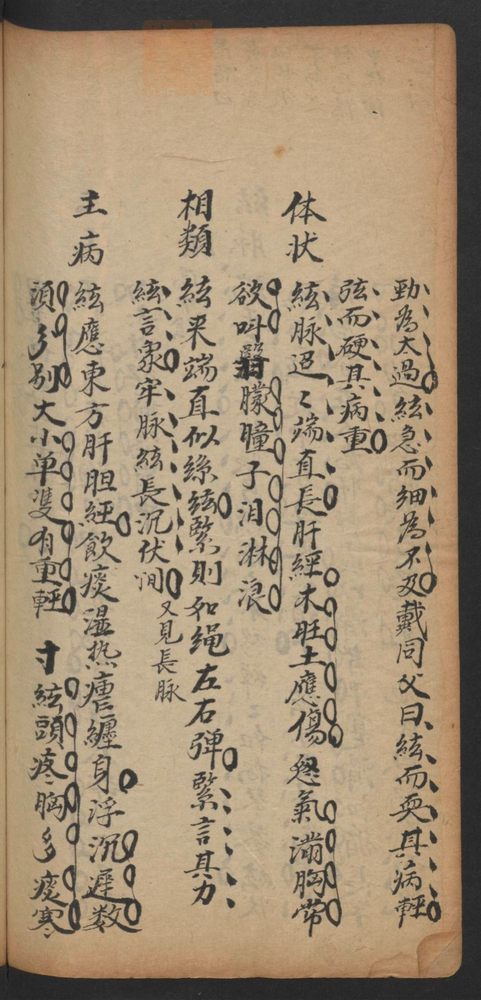 勁為太過絃急而細為不及戴同父曰絃而耎其病輕
弦而硬其病重
体状 絃脉迢〻端直長肝經木旺土應傷怒氣滿胸常
欲叫翳朦瞳子泪淋浪
相類 絃来端直似絲絃緊則如绳左右彈緊言其力
絃言象牢脉絃長沉伏间又見長脉
主病 絃應東方肝胆經飲痰湿热瘧纏身浮沉遲数
須分别大小单雙有重輕 寸絃頭疼胸多痰寒